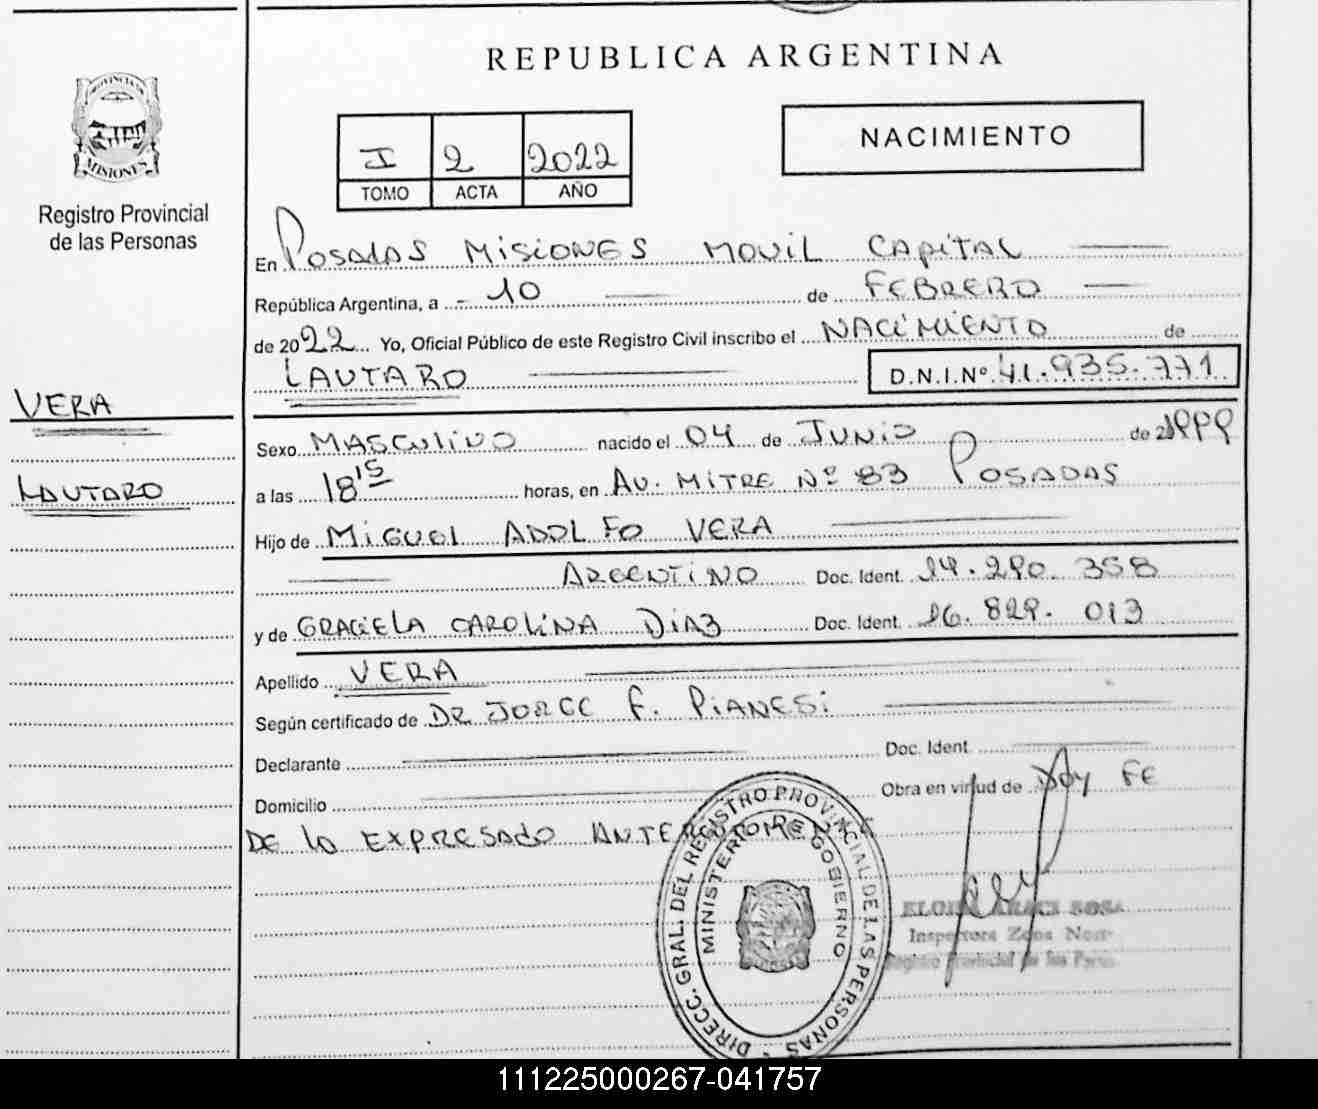 REPUBLICA ARGENTINA
PROVINCIA DE
MISIONES
Registro Provincial
de las Personas
I 2 2022
TOMO ACTA AÑO
NACIMIENTO
En POSADAS MISIONES MOVIL CAPITAL
República Argentina, a 10 de FEBRERO
de 2022 Yo, Oficial Público de este Registro Civil inscribo el NACIMIENTO de
LAUTARO D.N.I.Nº 41.935.771
VERA
Sexo MASCULINO nacido el 04 de JUNIO de 1999
LAUTARO
a las 18'15 horas, en AV. MITRE Nº 83 POSADAS
Hijo de MIGUEL ADOLFO VERA
ARGENTINO Doc. Ident. 14.290.358
y de GRACIELA CAROLINA DIAZ Doc. Ident. 16.829.013
Apellido VERA
Según certificado de DR JORGE F. PIANESI
Declarante Doc. Ident.
Domicilio Obra en virtud de Doy FE
DE lo EXPRESADO ANTERIORMENTE
DIRECC. GRAL. DEL REGISTRO PROVINCIAL DE LAS PERSONAS
MINISTERIO DE GOBIERNO
SOSA
Inspectora Zona Norte
Registro Provincial de las Personas
111225000267-041757